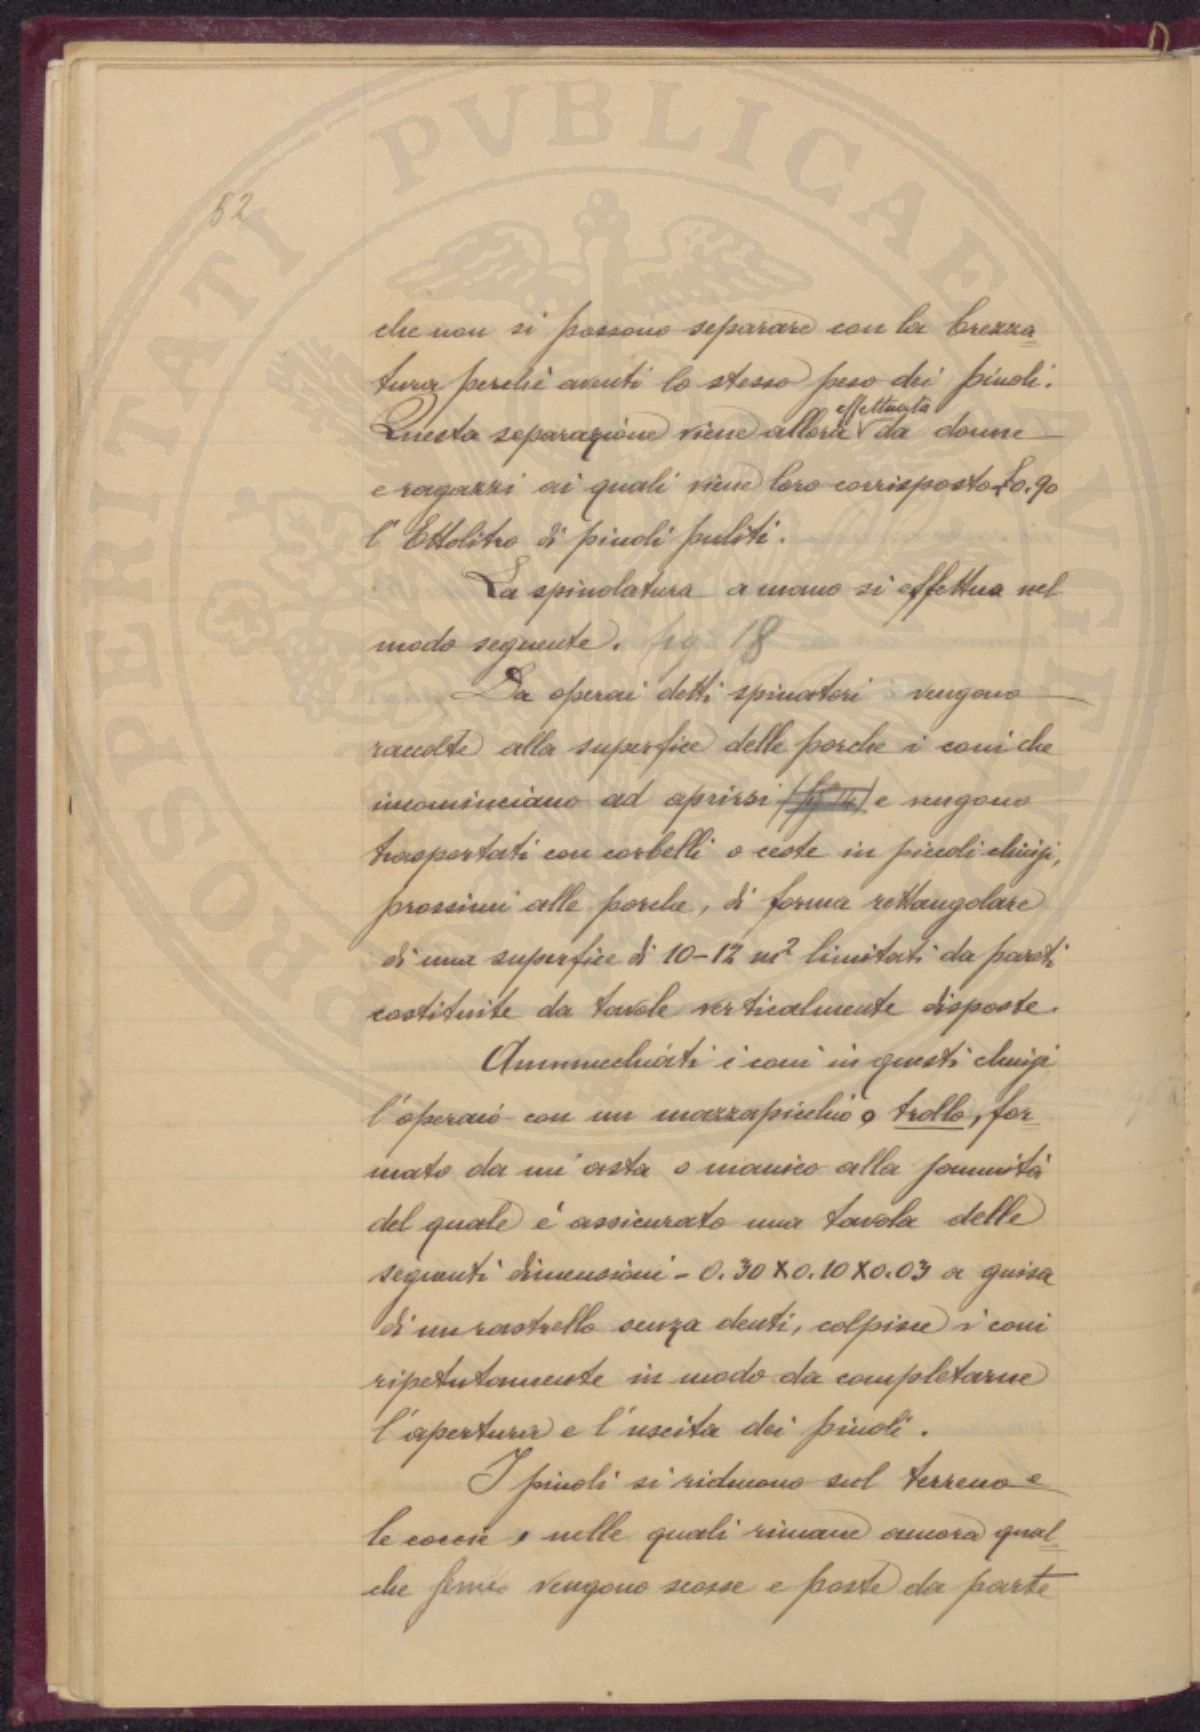 52
che non si possono separare con la brezza
tura perchè aventi lo stesso peso dei pinoli.
effettuata
Questa separazione viene allora da donne
e ragazzi ai quali viene loro corrisposto £0.90
l'Ettolitro di pinoli puliti.
La spinolatura a mano si effettua nel
modo seguente. fig 18
Da operai detti spinatori vengono
raccolte alla superfice delle porche i coni che
incominciano ad aprirsi e vengono
trasportati con corbelli o ceste in piccoli chiusi,
prossimi alle porche, di forma rettangolare
di una superfice di 10-12 m² limitati da pareti
costituite da tavole verticalmente disposte.
Ammucchiati i coni in questi chiusi
l'operaio con un mazzapicchio o trollo, for
mato da un'asta o manico alla sommità
del quale è assicurato una tavola delle
seguenti dimensioni - 0.30 X 0.10 X 0.03 a guisa
di un rastrello senza denti, colpisce i coni
ripetutamente in modo da completarne
l'apertura e l'uscita dei pinoli.
I pinoli si riducono sul terreno e
le coccie, nelle quali rimane ancora qual
che seme vengono scosse e poste da parte
PROSPERITATI PVBLICAE AVGENDAE